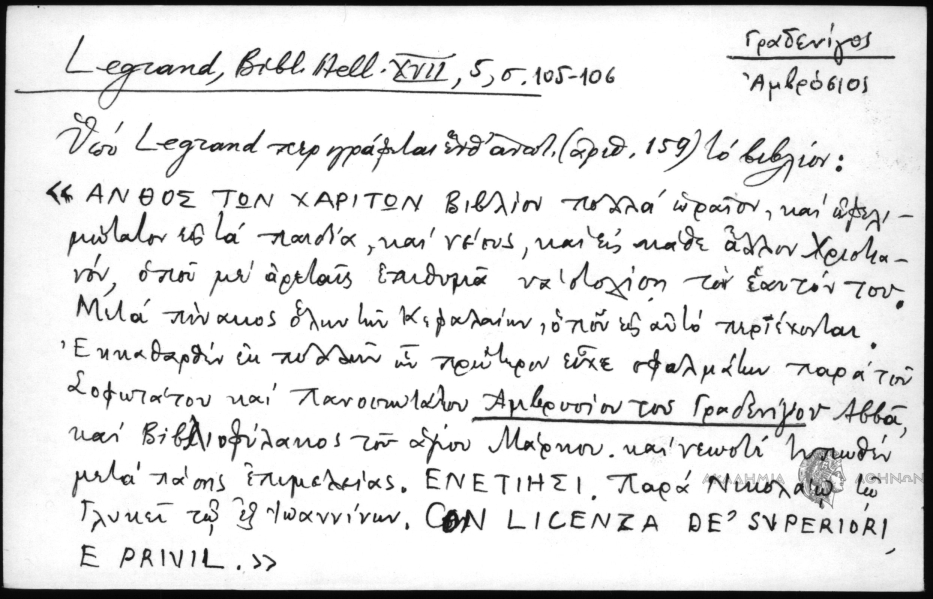 Γραδενίγος
Ἀμβρόσιος
Legrand, Bibl. Hell. XVII, 5, σ. 105-106
Ὑπὸ Legrand περιγράφεται ἐνθ' ἀνωτ. (ἀριθ. 159) τό βιβλίον:
« ΑΝΘΟΣ ΤΩΝ ΧΑΡΙΤΩΝ Βιβλίον πολλά ὡραῖον, καί ὠφελι-
μώτατον εἰς τά παιδία, καί νέους, καί εἰς κάθε ἄλλον Χριστια-
νόν, ὁποῦ μέ ἀρεταῖς ἐπιθυμᾶ νά στολίσῃ τόν ἑαυτόν του.
Μετά πίνακος ὅλων τῶν Κεφαλαίων, ὁποῦ εἰς αὐτό περιέχονται.
Ἐκκαθαρθέν ἐκ πολλῶν ὧν πρώτερον εἶχε σφαλμάτων παρά τοῦ
Σοφωτάτου καί Πανοσιωτάτου Ἀμβροσίου του Γραδενίγου Ἀββᾶ,
καί Βιβλιοφύλακος τοῦ ἁγίου Μάρκου. καί νεωστί τυπωθέν
μετά πάσης ἐπιμελείας. ΕΝΕΤΙΗΣΙ. Παρά Νικολάῳ τῷ
Γλυκεῖ τῷ ἐξ Ἰωαννίνων. CON LICENZA DE' SVPERIORI,
E PRIVIL. »
ΑΚΑΔΗΜΙΑ ΑΘΗΝΩΝ